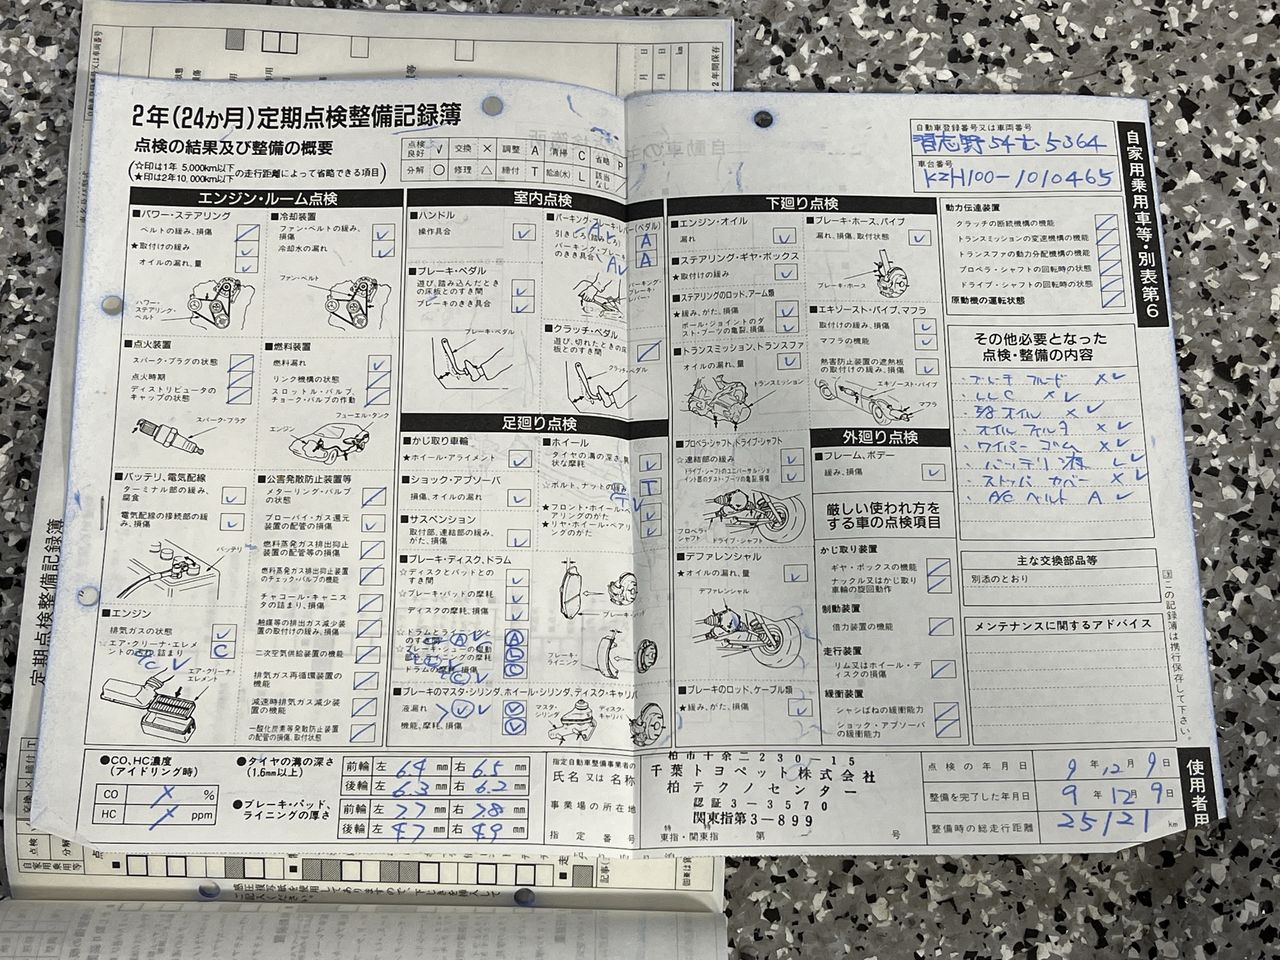 2年(24か月)定期点検整備記録簿
点検の結果及び整備の概要
(☆印は1年 5,000km以下
★印は2年10,000km以下 の走行距離によって省略できる項目)
点検良好 レ 交換 × 調整 A 清掃 C 省略 P
分解 ○ 修理 △ 締付 T 給油(水) L 該当なし
自動車登録番号又は車両番号
習志野54 5364
車台番号
KZH100-1010465
自家用乗用車等・別表第6
エンジン・ルーム点検
■パワー・ステアリング
ベルトの緩み、損傷
★取付けの緩み
オイルの漏れ、量
パワー・ステアリング・ベルト
■冷却装置
ファン・ベルトの緩み、損傷
冷却水の漏れ
ファン・ベルト
■点火装置
スパーク・プラグの状態
点火時期
ディストリビュータのキャップの状態
スパーク・プラグ
■燃料装置
燃料漏れ
リンク機構の状態
スロットル・バルブ、チョーク・バルブの作動
フューエル・タンク
エンジン
■バッテリ、電気配線
ターミナル部の緩み、腐食
電気配線の接続部の緩み、損傷
バッテリ
■公害発散防止装置等
メターリング・バルブの状態
ブローバイ・ガス還元装置の配管の損傷
燃料蒸発ガス排出抑止装置の配管等の損傷
燃料蒸発ガス排出抑止装置のチェック・バルブの機能
チャコール・キャニスタの詰まり、損傷
触媒等の排出ガス減少装置の取付けの緩み、損傷
二次空気供給装置の機能
排気ガス再循環装置の機能
減速時排気ガス減少装置の機能
一酸化炭素等発散防止装置の配管の損傷、取付状態
■エンジン
排気ガスの状態
エア・クリーナ・エレメントの 詰まり C
エア・クリーナ・エレメント
室内点検
■ハンドル
操作具合
■ブレーキ・ペダル
遊び、踏み込んだときの床板とのすき間
ブレーキのきき具合
ブレーキ・ペダル
引きしろ A
パーキング・ブレーキのきき具合 A
■クラッチ・ペダル
遊び、切れたときの床板とのすき間
足廻り点検
■かじ取り車輪
★ホイール・アライメント
■ショック・アブソーバ
損傷、オイルの漏れ
■サスペンション
取付部、連結部の緩み、がた、損傷
■ホイール
☆ボルト、ナットの緩み T
★フロント・ホイール・ベアリングのがた
★リヤ・ホイール・ベアリングのがた
■ブレーキ・ディスク、ドラム
☆ディスクとパッドとのすき間
☆ブレーキ・パッドの摩耗
ディスクの摩耗、損傷
ドラムの摩耗、損傷
■ブレーキのマスタ・シリンダ、ホイール・シリンダ、ディスク・キャリパ
液漏れ
機能、摩耗、損傷
マスタ・シリンダ
ディスク・キャリパ
下廻り点検
■エンジン・オイル
漏れ
■ステアリング・ギヤ・ボックス
★取付けの緩み
■ステアリングのロッド、アーム類
★緩み、がた、損傷
ボール・ジョイントのダスト・ブーツの亀裂、損傷
■トランスミッション、トランスファ
★オイルの漏れ、量
トランスミッション
■プロペラ・シャフト、ドライブ・シャフト
☆連結部の緩み
プロペラ・シャフト
ドライブ・シャフト
■デファレンシャル
★オイルの漏れ、量
デファレンシャル
■ブレーキのロッド、ケーブル類
★緩み、がた、損傷
■ブレーキ・ホース、パイプ
漏れ、損傷、取付状態
ブレーキ・ホース
■エキゾースト・パイプ、マフラ
取付けの緩み、損傷
マフラの機能
熱害防止装置の遮熱板の取付けの緩み、損傷
エキゾースト・パイプ
マフラ
外廻り点検
■フレーム、ボデー
緩み、損傷
厳しい使われ方をする車の点検項目
かじ取り装置
ギヤ・ボックスの機能
ナックル又はかじ取り車輪の旋回動作
制動装置
倍力装置の機能
走行装置
リム又はホイール・ディスクの損傷
緩衝装置
シャシばねの緩衝能力
ショック・アブソーバの緩衝能力
動力伝達装置
クラッチの断続機構の機能
トランスミッションの変速機構の機能
トランスファの動力分配機構の機能
プロペラ・シャフトの回転時の状態
ドライブ・シャフトの回転時の状態
原動機の運転状態
その他必要となった
点検・整備の内容
・ブレーキ フルード ×レ
・LLC ×レ
・オイル ×レ
・オイル フィルタ ×レ
・ワイパー ゴム ×レ
・バッテリ 液 Lレ
・ストッパ カバー ×レ
・A/C ベルト A レ
主な交換部品等
別添のとおり
メンテナンスに関するアドバイス
この記録簿は携行保存して下さい。
●CO、HC濃度
(アイドリング時)
CO %
HC ppm
●タイヤの溝の深さ
(1.6mm以上)
前輪 左 6.4 mm 右 6.5 mm
後輪 左 6.3 mm 右 6.2 mm
●ブレーキ・パッド、ライニングの厚さ
前輪 左 7.7 mm 右 7.8 mm
後輪 左 4.7 mm 右 4.9 mm
指定自動車整備事業者の
氏名又は名称
事業場の所在地
指定番号
柏市十余二230-15
千葉トヨペット株式会社
柏テクノセンター
認証3-3570
関東指第3-899
東指・関東指 第 号
点検の年月日 9年12月9日
整備を完了した年月日 9年12月9日
整備時の総走行距離 25121 km
使用者用
定期点検整備記録簿